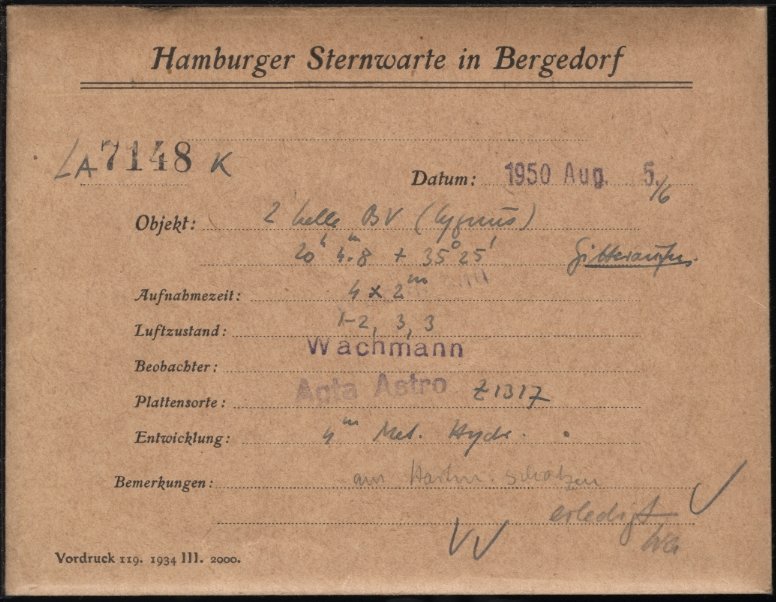 Hamburger Sternwarte in Bergedorf
LA 7148 K
Datum: 1950 Aug. 5./6
Objekt: 2 helle BV (Cygnus)
20ʰ 4ᵐ.8 + 35° 25′ Gitteraufn.
Aufnahmezeit: 4 x 2ᵐ
Luftzustand: 1-2, 3, 3
Beobachter: Wachmann
Plattensorte: Agfa Astro Z1317
Entwicklung: 4ᵐ Met. Hydr.
Bemerkungen: am Hartm. schätzen
erledigt
Wa
Vordruck 119. 1934 III. 2000.